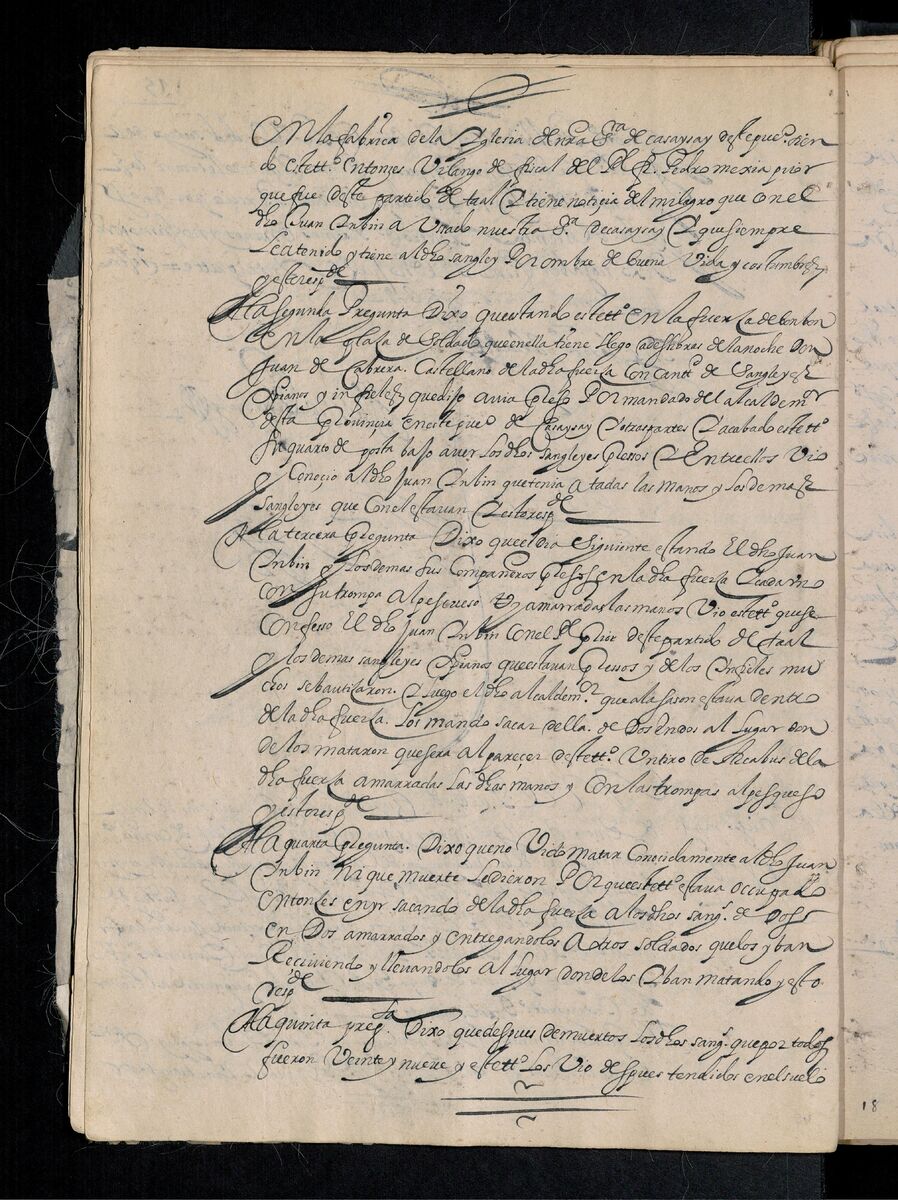 en la fabrica de la Yglesia de nra Sra de casaysay deste pueo sien
do este tto entonzes Vilango de fiscal del Pe fr. Pedro mexia prior
que fue deste partido de taal y tiene notiçia del milagro que con el
dho Juan Inbin a Usado nuestra Sa de casaysay y que siempre
le a tenido y tiene al dho sangley Por ombre de buena Vida y costumbres
y esto respde
A la segunda Pregunta Dixo questando este tto en la fuerça de bonbon
en la plaça de soldado que en ella tiene llego a des oras de la noche Don
Juan de Cabrera Castellano de la dha fuerça con cantd de Sangleyes
Xpianos y infieles que dijo avia preso Por mandado del alcalde mr
desta provinçia en este pueo de Casaysay y otras partes y acabado este tto
su quarto de posta bajo a ver los dhos sangleyes pressos y Entre ellos Vio
y conoçio al dho Juan Inbin que tenia atadas las manos y los demas
sangleyes que con el estavan y esto respde
A la tercera pregunta Dixo que el dia siguiente estando El dho Juan
Inbin y los demas sus compañeros presos en la dha fuerça cada uno
con su trompa al pescueso y amarradas las manos Vio este tto que se
confesso El dho Juan Inbin con el Pe prior deste partido de taal
y los demas sangleyes Xpianos que estavan pressos y de los Infieles mu
chos se bautizaron. y luego el dho alcalde mr que a la sason estava dentro
de la dha fuerça. los mando sacar della. de Dos en dos al lugar don
de los mataron que sera al pareçer deste tto Un tiro de Arcabus de la
dha fuerça amarradas las dhas manos y con las trompas al pesqueso
y esto respde
A la quarta pregunta. Dixo que no Vido matar conocidamente al dho Juan
Inbin ni que muerte le dieron Por que este tto estava occupado
entonses en yr sacando de la dha fuerça a los dhos sangs de Dos
en Dos amarrados y entregandolos a otros soldados que los yban
Reciviendo y llevandolos al lugar donde los Yban matando y esto
respde
A la quinta prega Dixo que despues de muertos los dhos sangs que por todos
fueron Veinte y nueve y este tto los Vio despues tendidos en el suelo
18